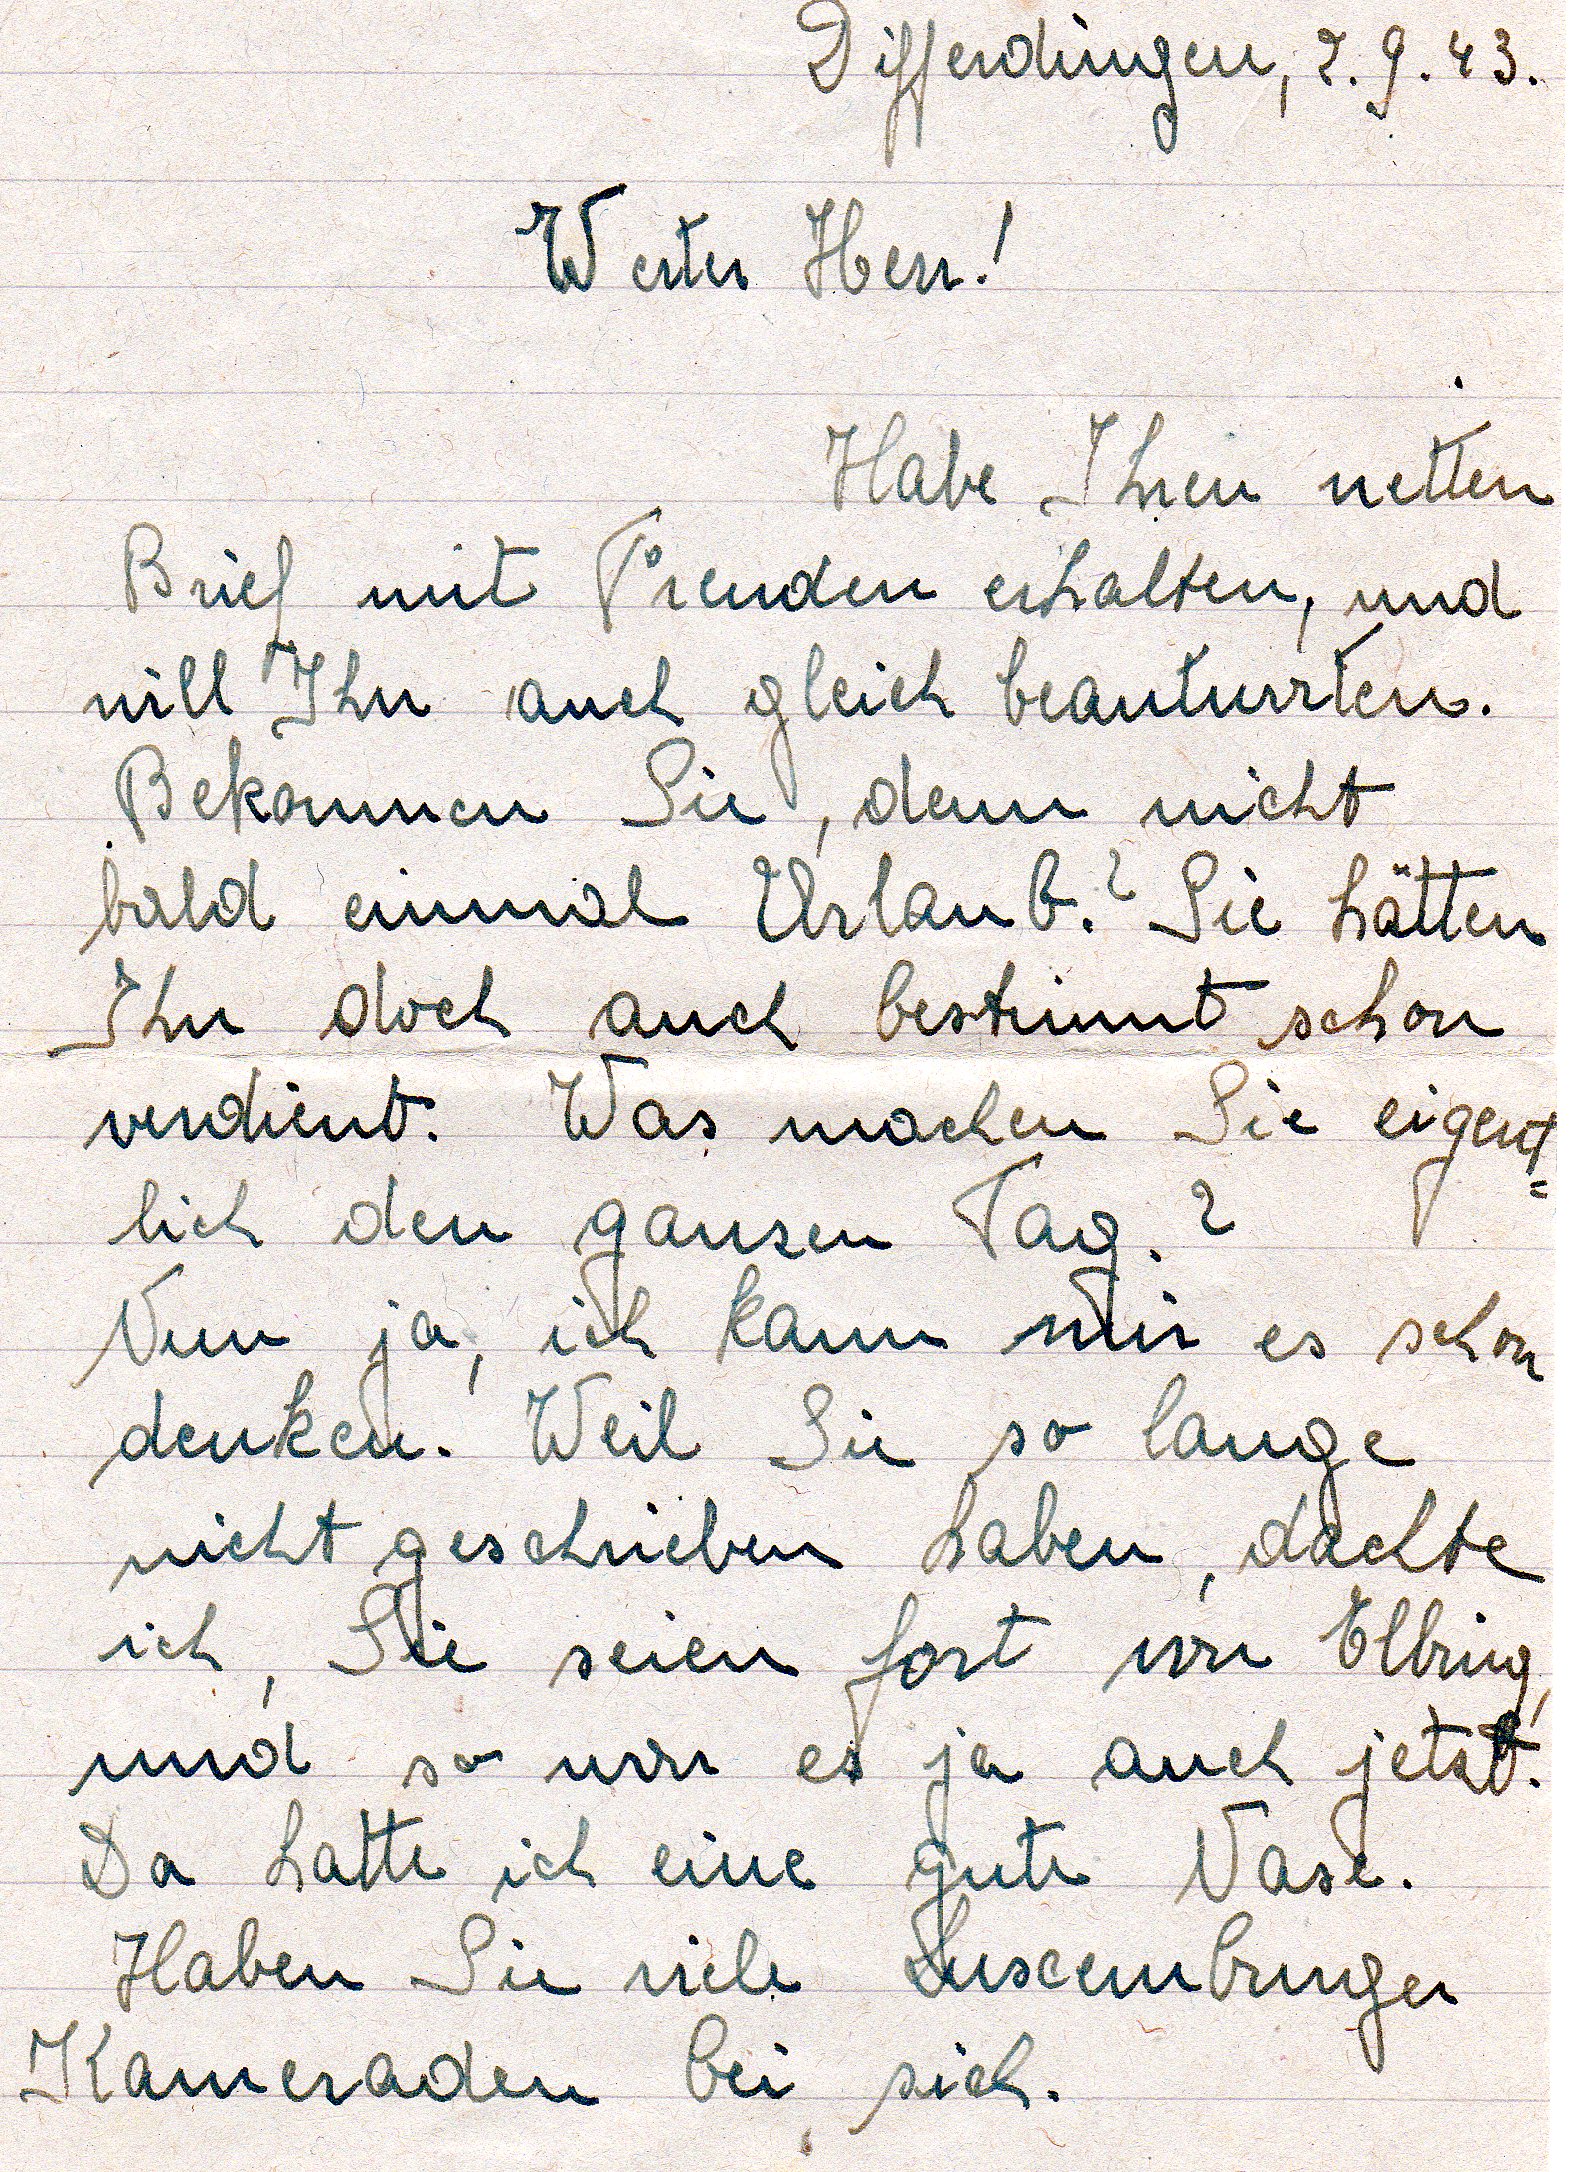 Differdingen, 2.9.43.
Werter Herr!
Habe Ihren netten
Brief mit Freuden erhalten, und
will Ihn auch gleich beantworten.
Bekommen Sie, denn nicht
bald einmal Urlaub.? Sie hätten
Ihn doch auch bestimmt schon
verdient. Was machen Sie eigent=
lich den ganzen Tag.?
Nun ja, ich kann mir es schon
denken. Weil Sie so lange
nicht geschrieben haben, dachte
ich, Sie seien fort von Elbing,
und so war es ja auch jetzt.
Da hatte ich eine gute Nase.
Haben Sie viele Luxemburger
Kameraden bei sich.